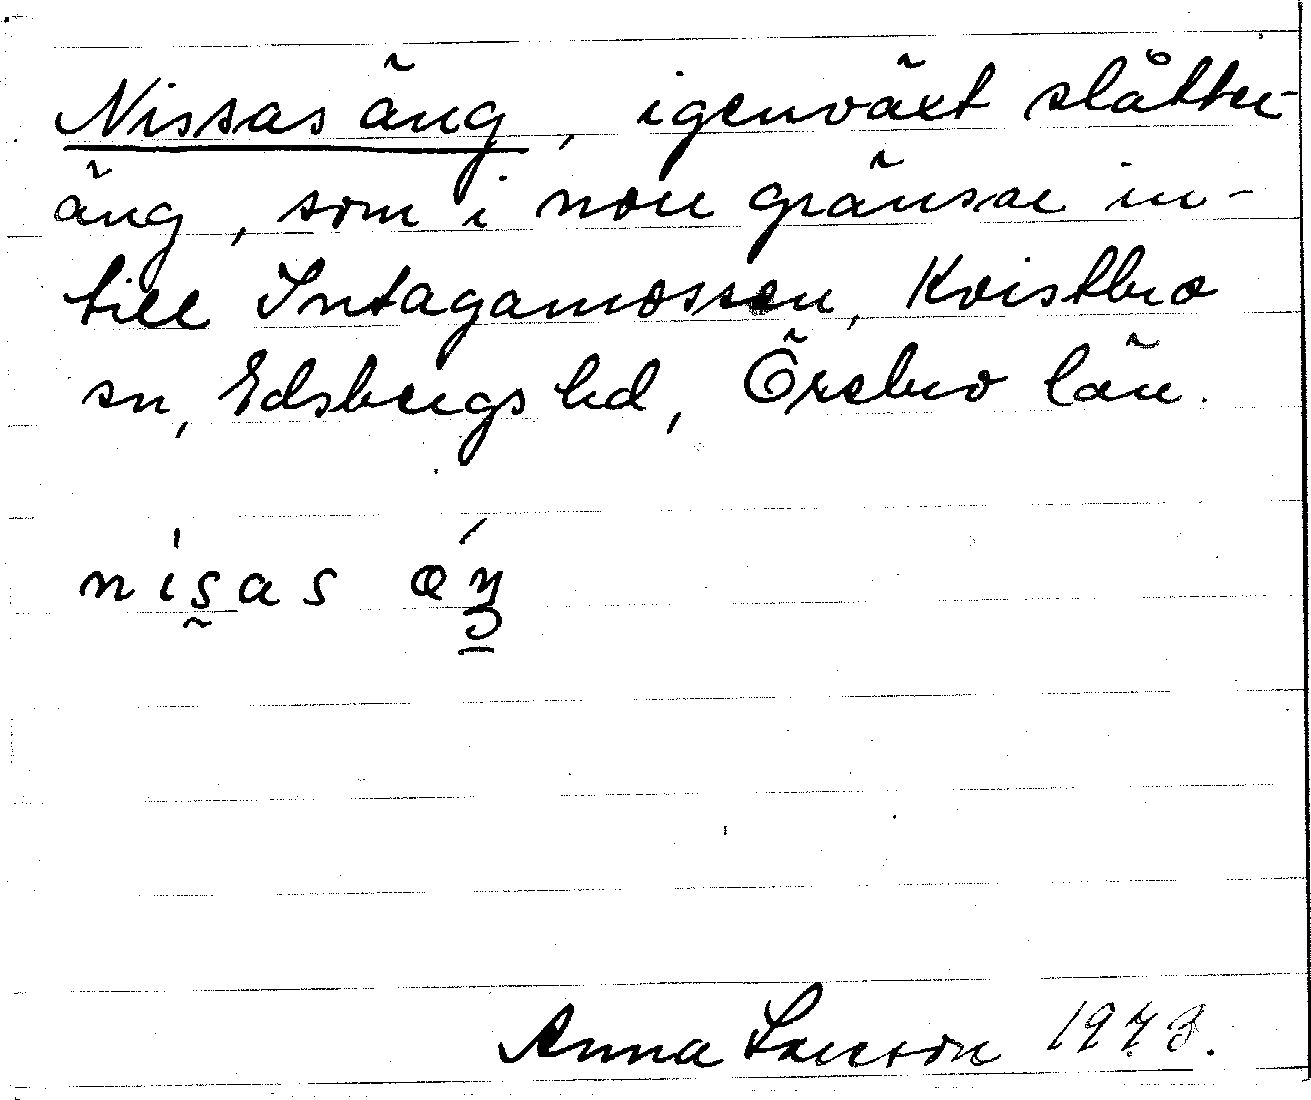 Nissas äng, igenväxt slåtter-
äng, som i norr gränsar in-
till Intagamossen, Kvistbro
sn, Edsbergs hd, Örebro län.
nisas
Anna Larsson 1973.